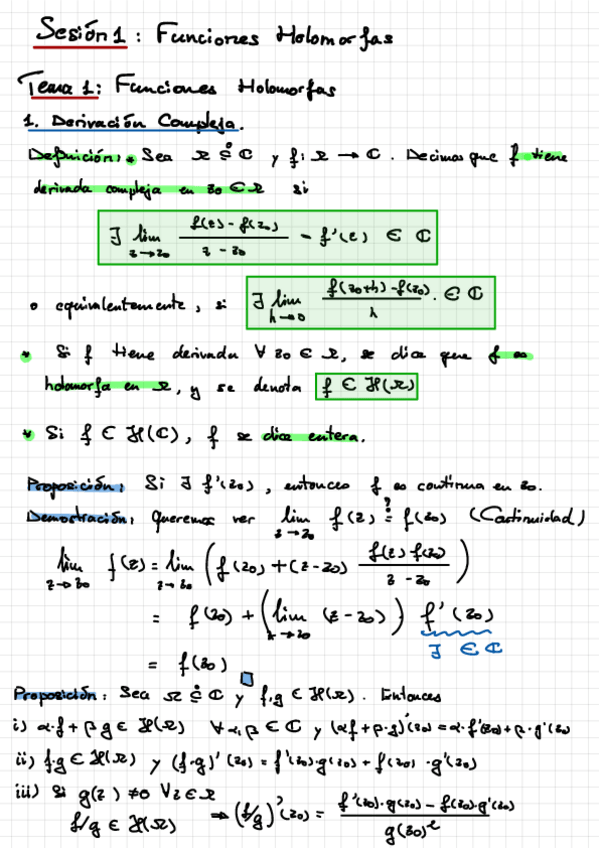 Sesión 1: Funciones Holomorfas
Tema 1: Funciones Holomorfas
1. Derivación Compleja.
Definición: • Sea Ω ⊆° ℂ y f: Ω → ℂ. Decimos que f tiene
derivada compleja en z₀ ∈ Ω si
∃ lim_{z→z₀} (f(z) - f(z₀))/(z - z₀) = f'(z) ∈ ℂ
o equivalentemente, si ∃ lim_{h→0} (f(z₀+h) - f(z₀))/h. ∈ ℂ
• Si f tiene derivada ∀ z₀ ∈ Ω, se dice que f es
holomorfa en Ω, y se denota f ∈ ℋ(Ω)
• Si f ∈ ℋ(ℂ), f se dice entera.
Proposición: Si ∃ f'(z₀), entonces f es continua en z₀.
Demostración: Queremos ver lim_{z→z₀} f(z) =? f(z₀) (Continuidad)
lim_{z→z₀} f(z) = lim_{z→z₀} (f(z₀) + (z-z₀) (f(z)-f(z₀))/(z-z₀))
= f(z₀) + (lim_{z→z₀} (z-z₀)) f'(z₀)
∃ ∈ ℂ
= f(z₀) □
Proposición: Sea Ω ⊆° ℂ y f,g ∈ ℋ(Ω). Entonces
i) α·f + β·g ∈ ℋ(Ω) ∀α,β ∈ ℂ y (αf+β·g)'(z₀) = α·f'(z₀)+β·g'(z₀)
ii) f·g ∈ ℋ(Ω) y (f·g)'(z₀) = f'(z₀)·g(z₀) + f(z₀)·g'(z₀)
iii) Si g(z) ≠ 0 ∀z ∈ Ω
f/g ∈ ℋ(Ω) ⇒ (f/g)'(z₀) = (f'(z₀)·g(z₀) - f(z₀)·g'(z₀))/g(z₀)²